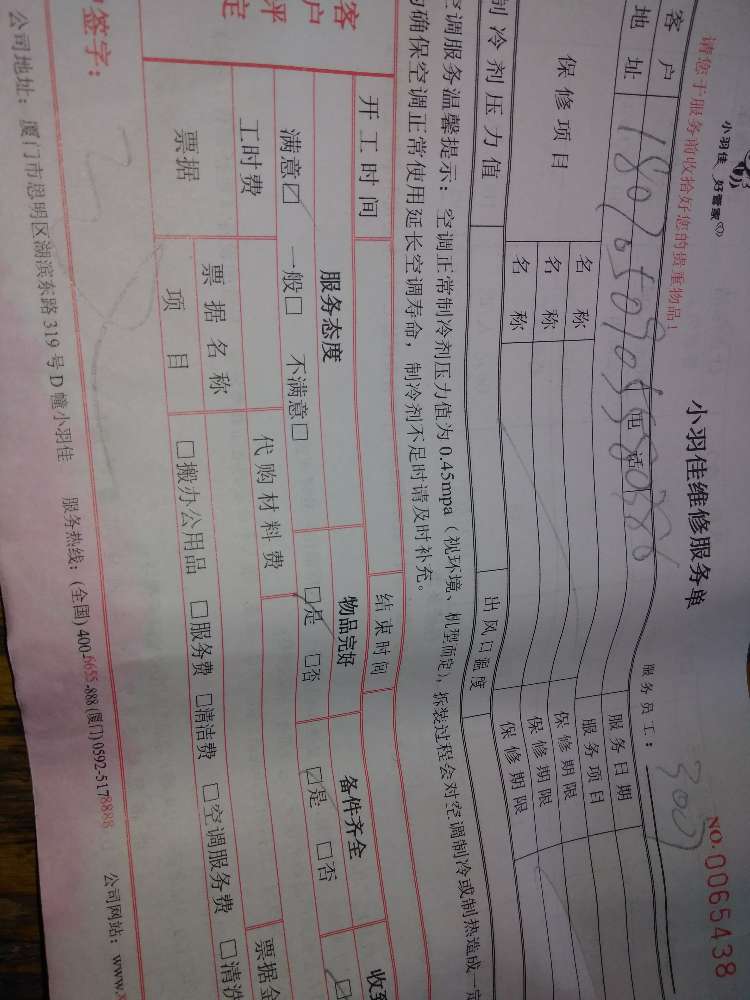 小羽佳 好管家
小羽佳维修服务单
NO:0065438
请您于服务前收拾好您的贵重物品!
服务员工: 3007
客户
地址
电话
服务日期
服务项目
保修项目
名称
保修期限
名称
保修期限
名称
保修期限
制冷剂压力值
出风口温度
空调服务温馨提示: 空调正常制冷剂压力值为0.45mpa (视环境、机型而定), 拆装过程会对空调制冷或制热造成一定
确保空调正常使用延长空调寿命, 制冷剂不足时请及时补充。
开工时间
结束时间
客户评定
服务态度
物品完好
备件齐全
满意☑ 一般□ 不满意□
☑是 □否
☑是 □否
工时费
代购材料费
票据
票据名称
票据金
项目
□搬办公用品 □服务费 □清洁费 □空调服务费 □清洗
签字:
公司地址: 厦门市思明区湖滨东路319号D幢小羽佳 服务热线: (全国) 400-6655-888 (厦门) 0592-5178888 公司网站: www.